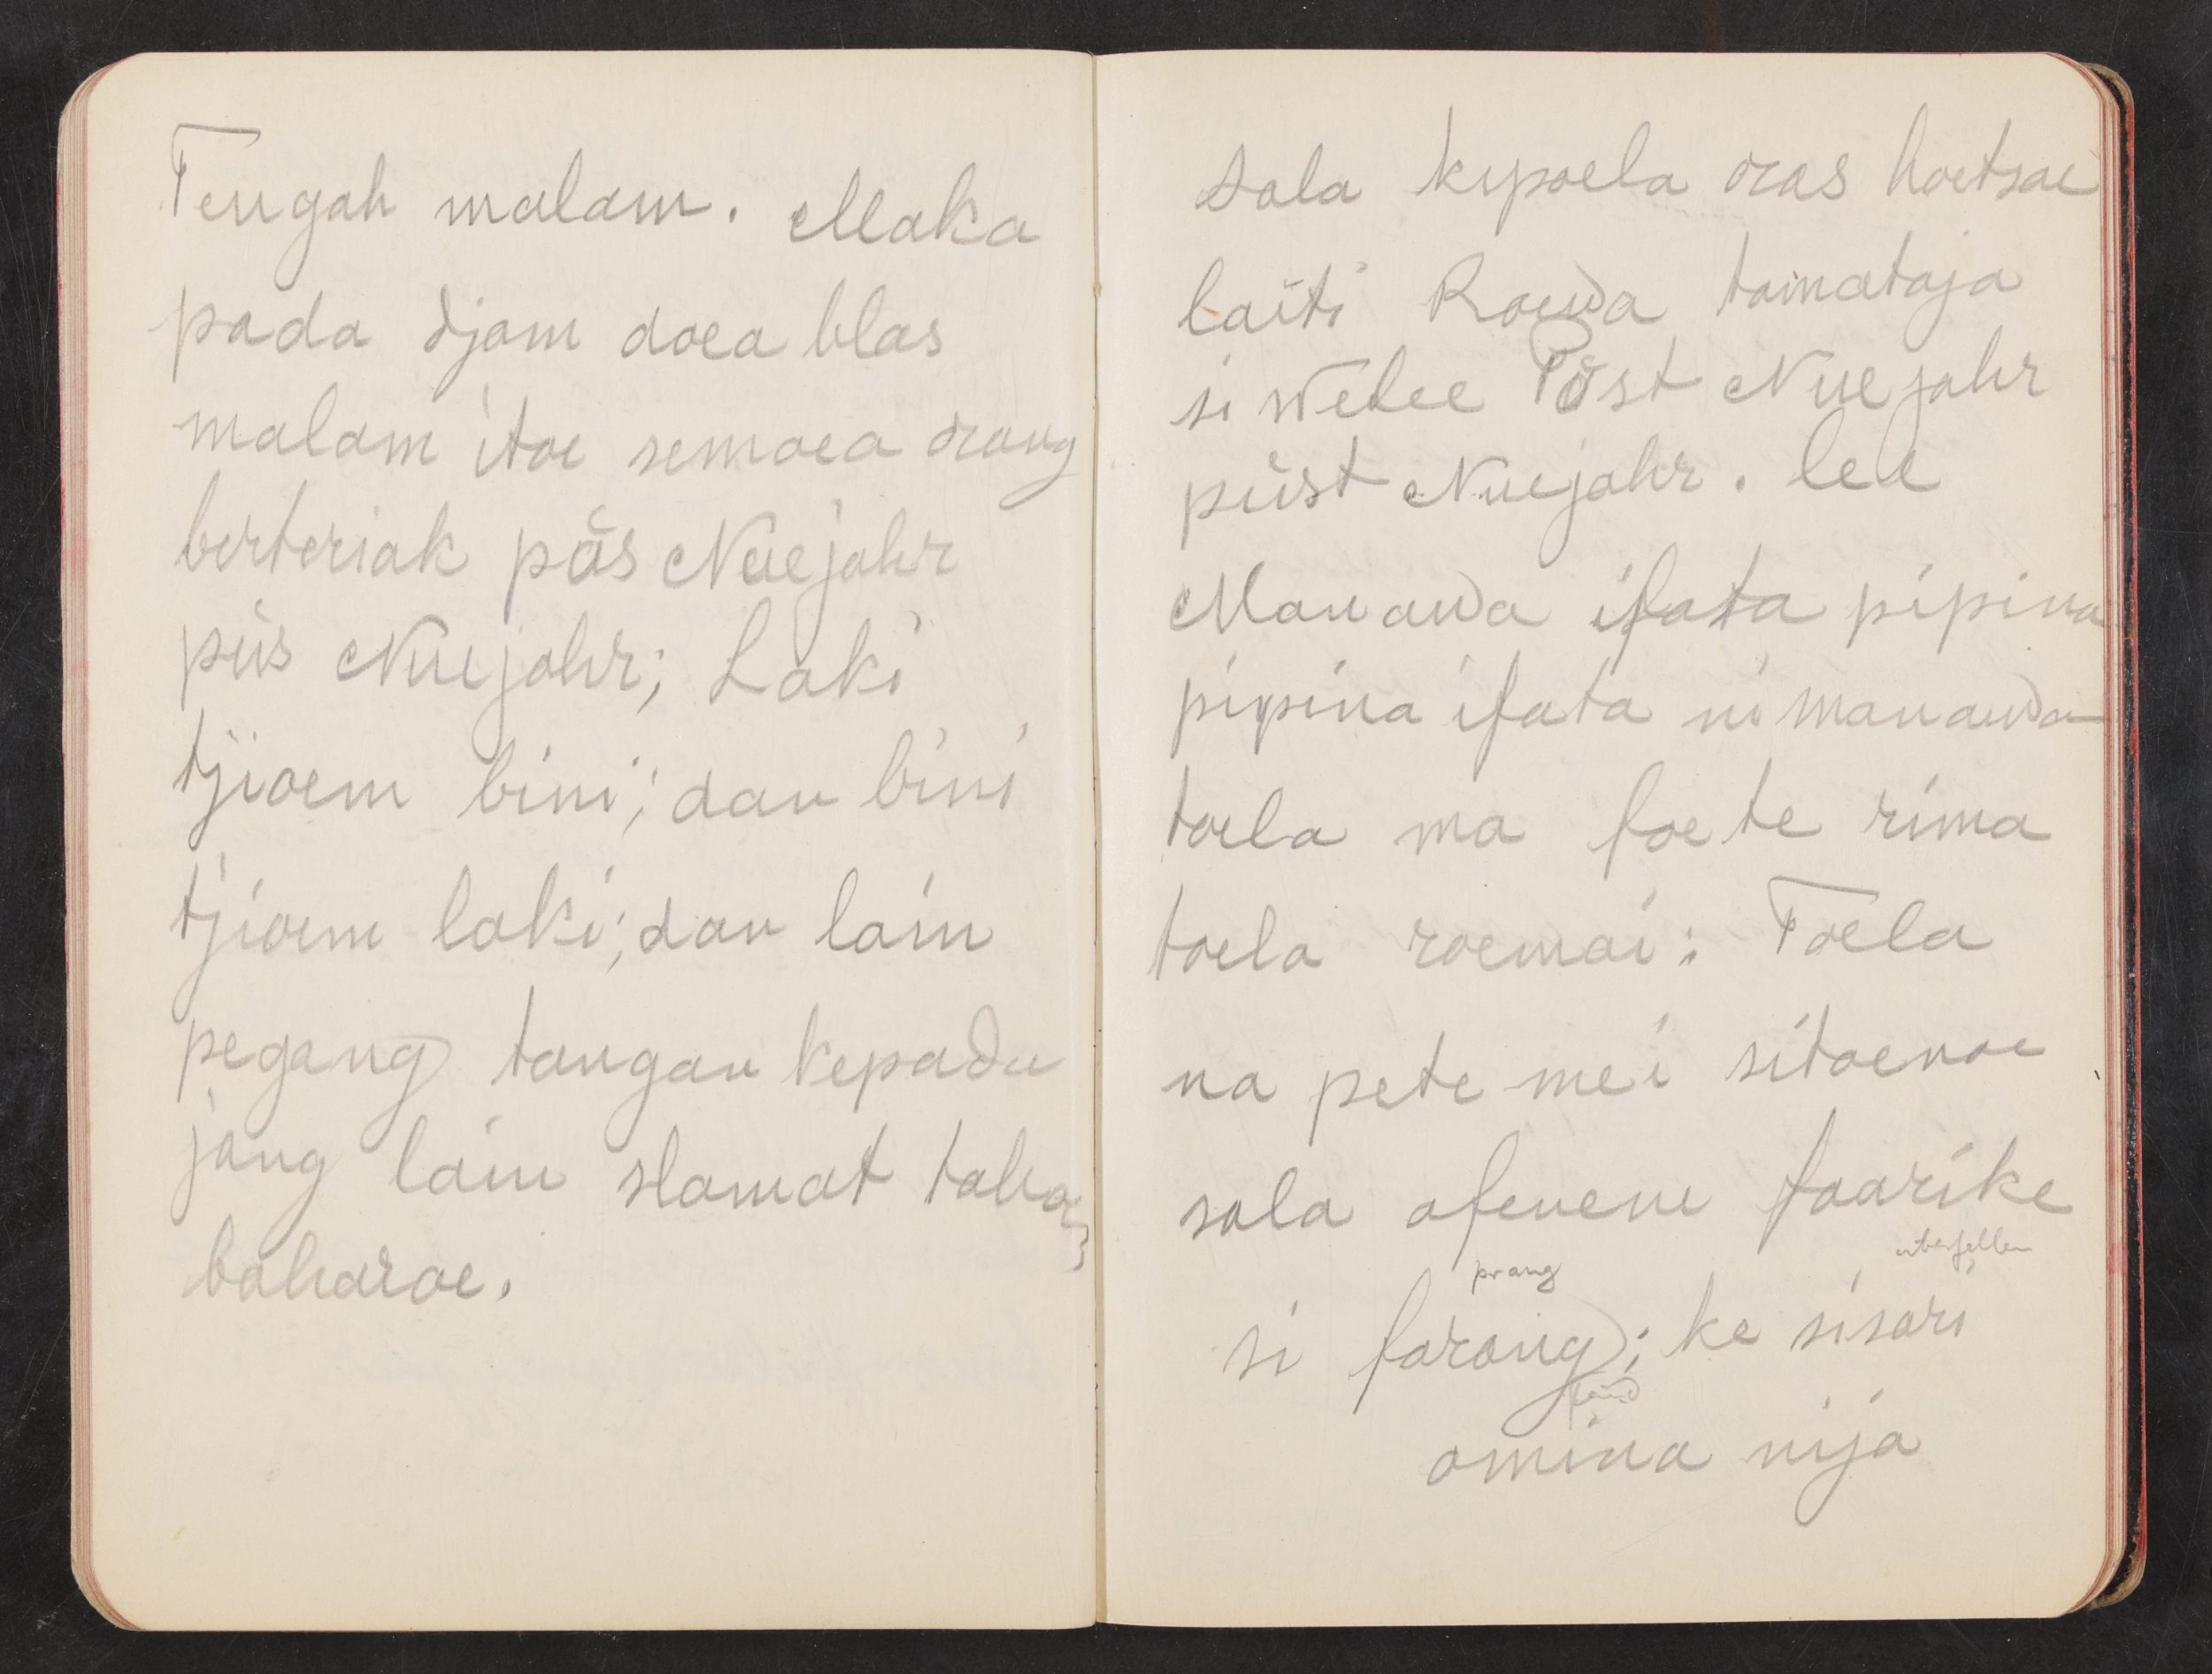 Tengah malam. Maka
pada djam doea blas
malam itoe semoea orang
berteriak päs Nuejahr
püs Nuejahr; Laki
tjioem bini; dan bini
tjioem laki; dan lain
pegang tangan kepada
jang lain slamat tahoen
baharoe.
Sala kipoela oras hoetsae
laiti Roewa tamataja
si Welee Pöst Nuejahr
püst Nuejahr. lee
Manawa ifata pipina
pipina ifata ni manawa
toela ma foete rima
toela roemai: Toela
na pete mei sitoenoe
sala afenene faarike
prang
si farang; ke sisari
omina nija